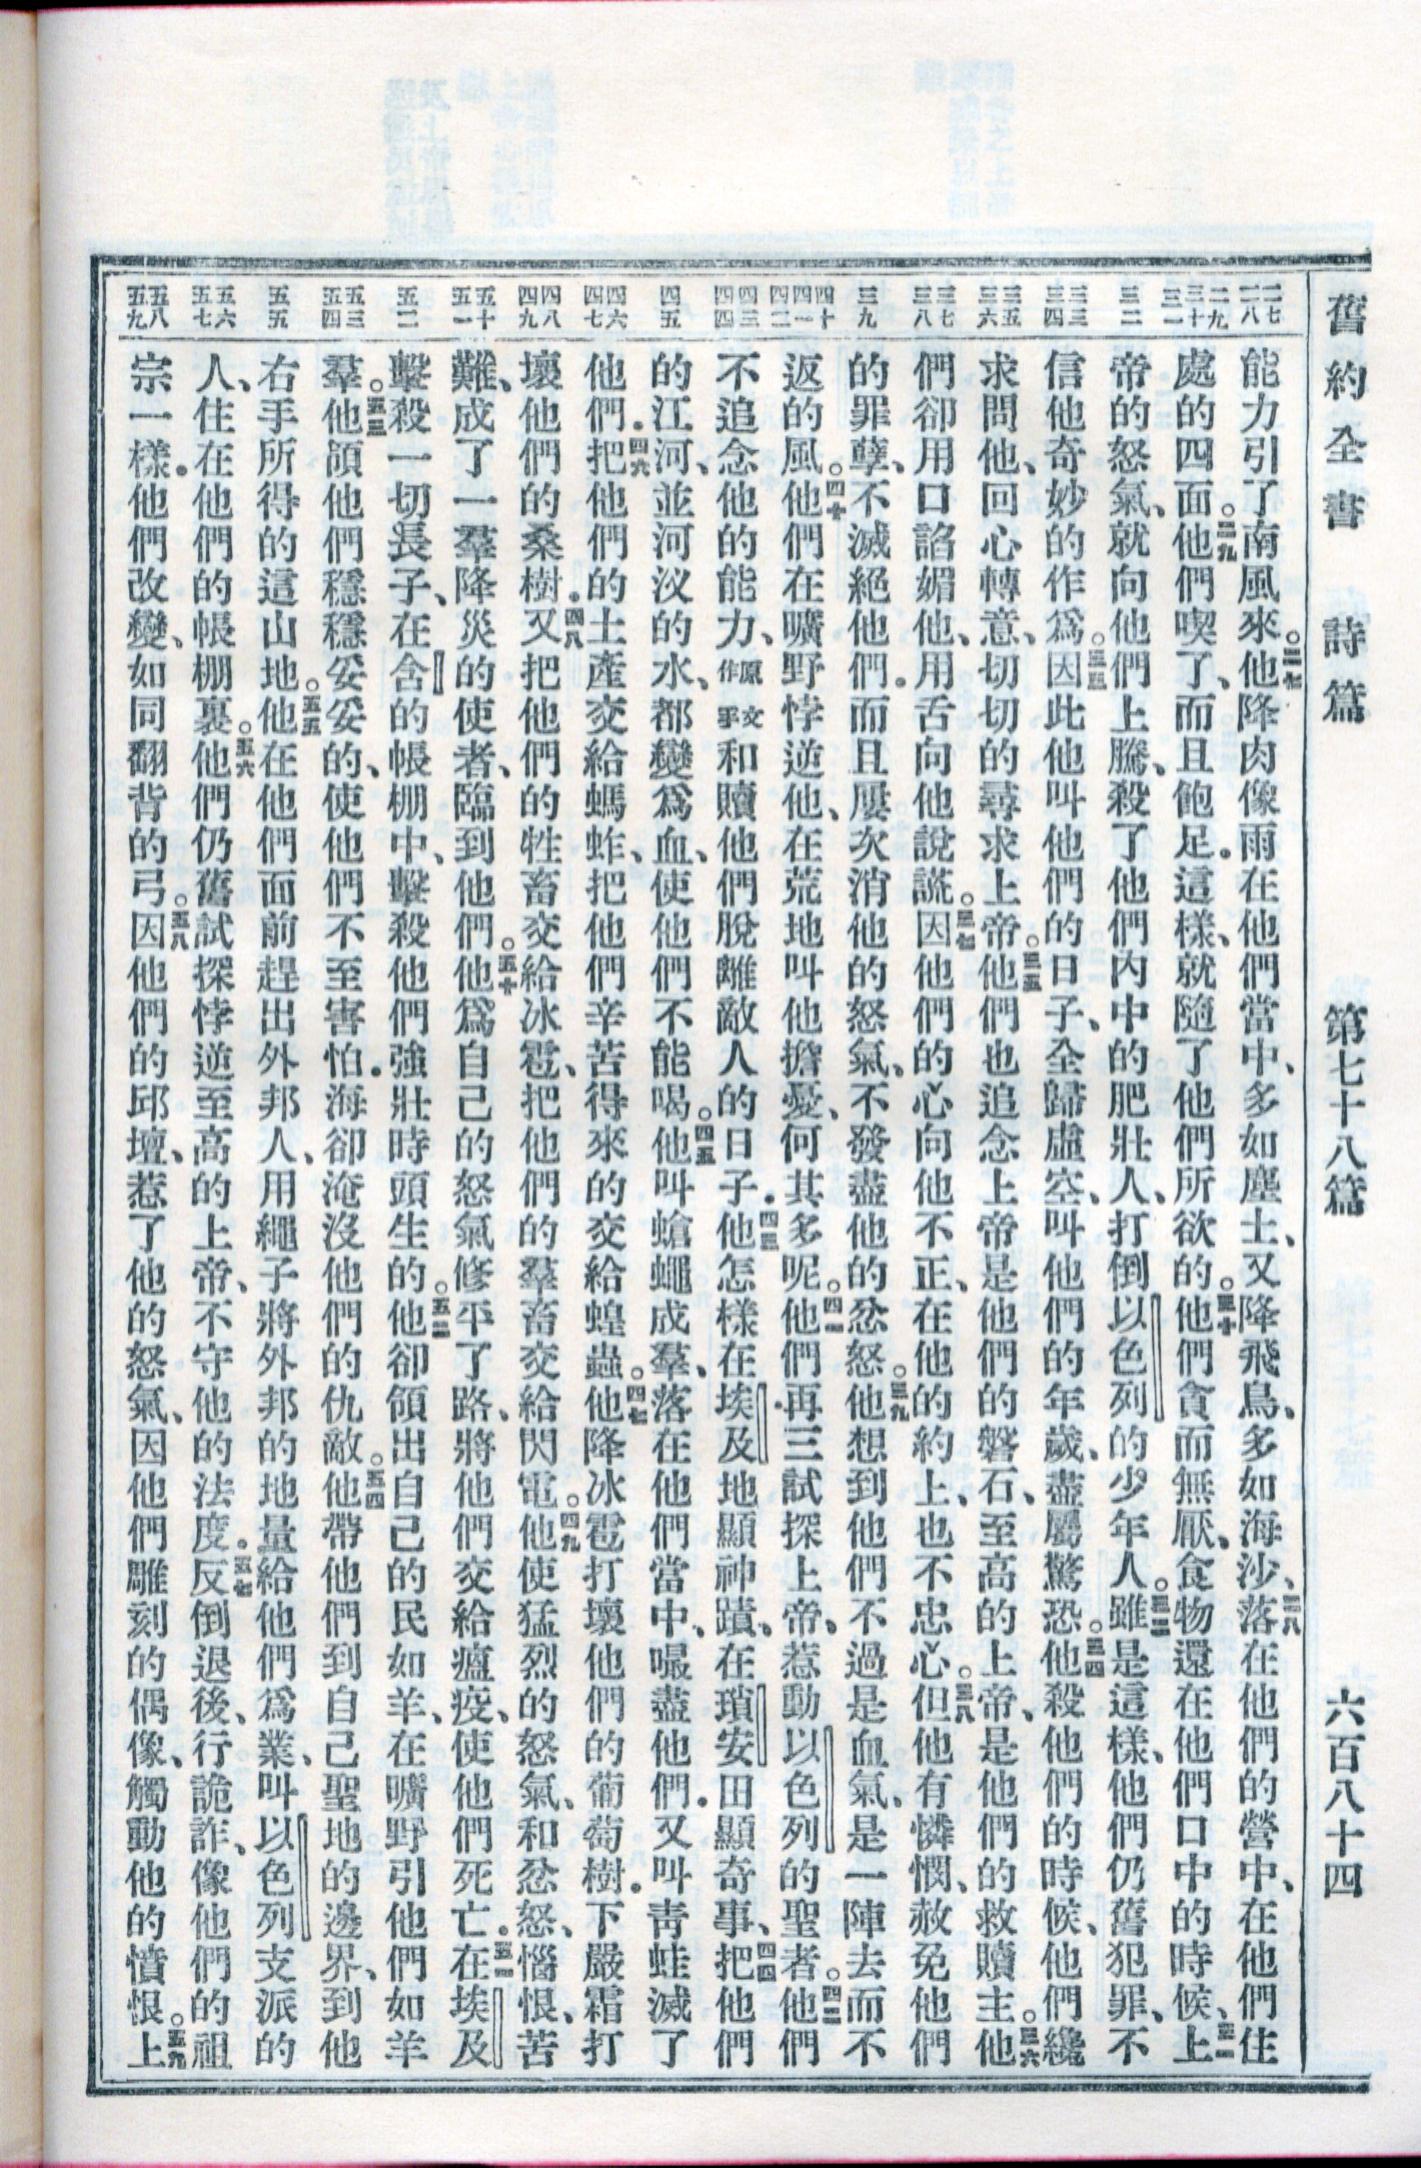 舊約全書 詩篇 第七十八篇 六百八十四
二七 二八
能力引了南風來。二七他降肉像雨在他們當中、多如塵土、又降飛鳥、多如海沙、二八落在他們的營中、在他們住
二九 三十 三一
處的四面。二九他們喫了、而且飽足．這樣、就隨了他們所欲的。三十他們貪而無厭、食物還在他們口中的時候、三一上
三二
帝的怒氣、就向他們上騰、殺了他們內中的肥壯人、打倒以色列的少年人。三二雖是這樣、他們仍舊犯罪、不
三三 三四
信他奇妙的作爲。三三因此他叫他們的日子、全歸虛空、叫他們的年歲、盡屬驚恐。三四他殺他們的時候、他們纔
三五 三六
求問他、回心轉意、切切的尋求上帝。三五他們也追念上帝是他們的磐石、至高的上帝、是他們的救贖主。三六他
三七 三八
們卻用口諂媚他、用舌向他說謊。三七因他們的心向他不正、在他的約上、也不忠心。三八但他有憐憫、赦免他們
三九
的罪孽、不滅絕他們．而且屢次消他的怒氣、不發盡他的忿怒。三九他想到他們不過是血氣、是一陣去而不
四十 四一 四二
返的風。四十他們在曠野悖逆他、在荒地叫他擔憂、何其多呢。四一他們再三試探上帝、惹動以色列的聖者。四二他們
四三 四四
不追念他的能力、原文作手和贖他們脫離敵人的日子．四三他怎樣在埃及地顯神蹟、在瑣安田顯奇事、四四把他們
四五
的江河、並河汊的水、都變爲血、使他們不能喝。四五他叫蒼蠅成羣、落在他們當中、嘬盡他們．又叫青蛙滅了
四六 四七
他們．四六把他們的土產交給螞蚱、把他們辛苦得來的交給蝗蟲。四七他降冰雹打壞他們的葡萄樹．下嚴霜打
四八 四九
壞他們的桑樹．四八又把他們的牲畜交給冰雹、把他們的羣畜交給閃電。四九他使猛烈的怒氣、和忿怒、惱恨、苦
五十 五一
難、成了一羣降災的使者、臨到他們。五十他爲自己的怒氣修平了路、將他們交給瘟疫、使他們死亡．五一在埃及
五二
擊殺一切長子、在含的帳棚中、擊殺他們強壯時頭生的。五二他卻領出自己的民如羊、在曠野引他們如羊
五三 五四
羣。五三他領他們穩穩妥妥的、使他們不至害怕．海卻淹沒他們的仇敵。五四他帶他們到自己聖地的邊界、到他
五五
右手所得的這山地。五五他在他們面前趕出外邦人、用繩子將外邦的地量給他們爲業、叫以色列支派的
五六 五七
人、住在他們的帳棚裏。五六他們仍舊試探悖逆至高的上帝、不守他的法度．五七反倒退後、行詭詐、像他們的祖
五八 五九
宗一樣．他們改變、如同翻背的弓。五八因他們的邱壇、惹了他的怒氣、因他們雕刻的偶像、觸動他的憤恨。五九上